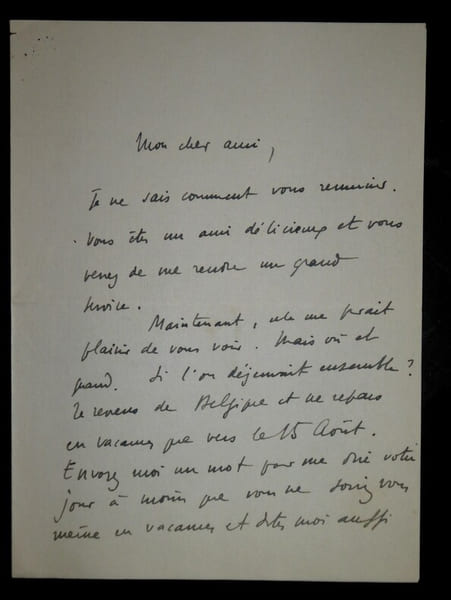 Mon cher ami,
Je ne sais comment vous remercier.
Vous êtes un ami délicieux et vous
venez de me rendre un grand
service.
Maintenant, cela me ferait
plaisir de vous voir. Mais où et
quand. Si l'on déjeunait ensemble ?
Je reviens de Belgique et ne repars
en vacances que vers le 15 Août.
Envoyez moi un mot pour me dire votre
jour à moins que vous ne soyez vous
même en vacances et dites moi aussi